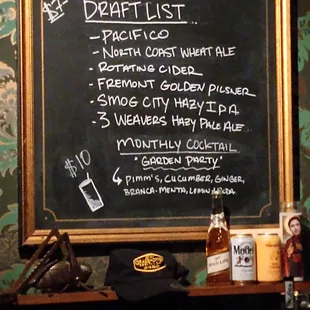 $7
DRAFT LIST
- PACIFICO
- NORTH COAST WHEAT ALE
- ROTATING CIDER
- FREMONT GOLDEN PILSNER
- SMOG CITY HAZY IPA
- 3 WEAVERS HAZY PALE ALE
MONTHLY COCKTAIL
"GARDEN PARTY"
$10
PIMM'S, CUCUMBER, GINGER,
BRANCA-MENTA, LEMON, SODA
Modelo